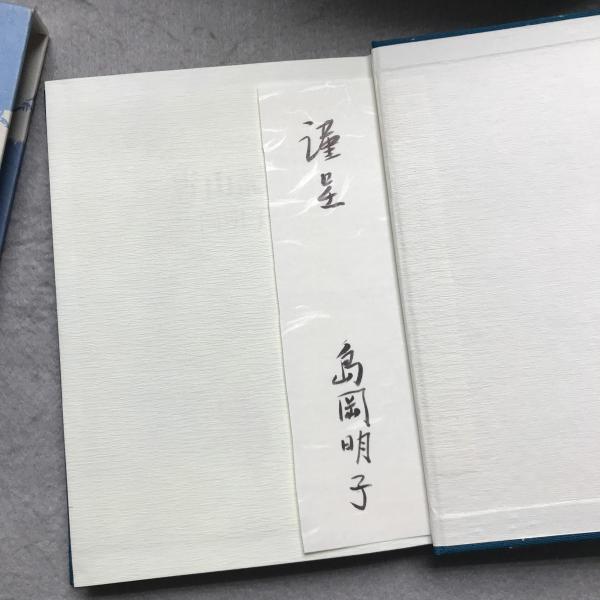 謹呈
島岡明子